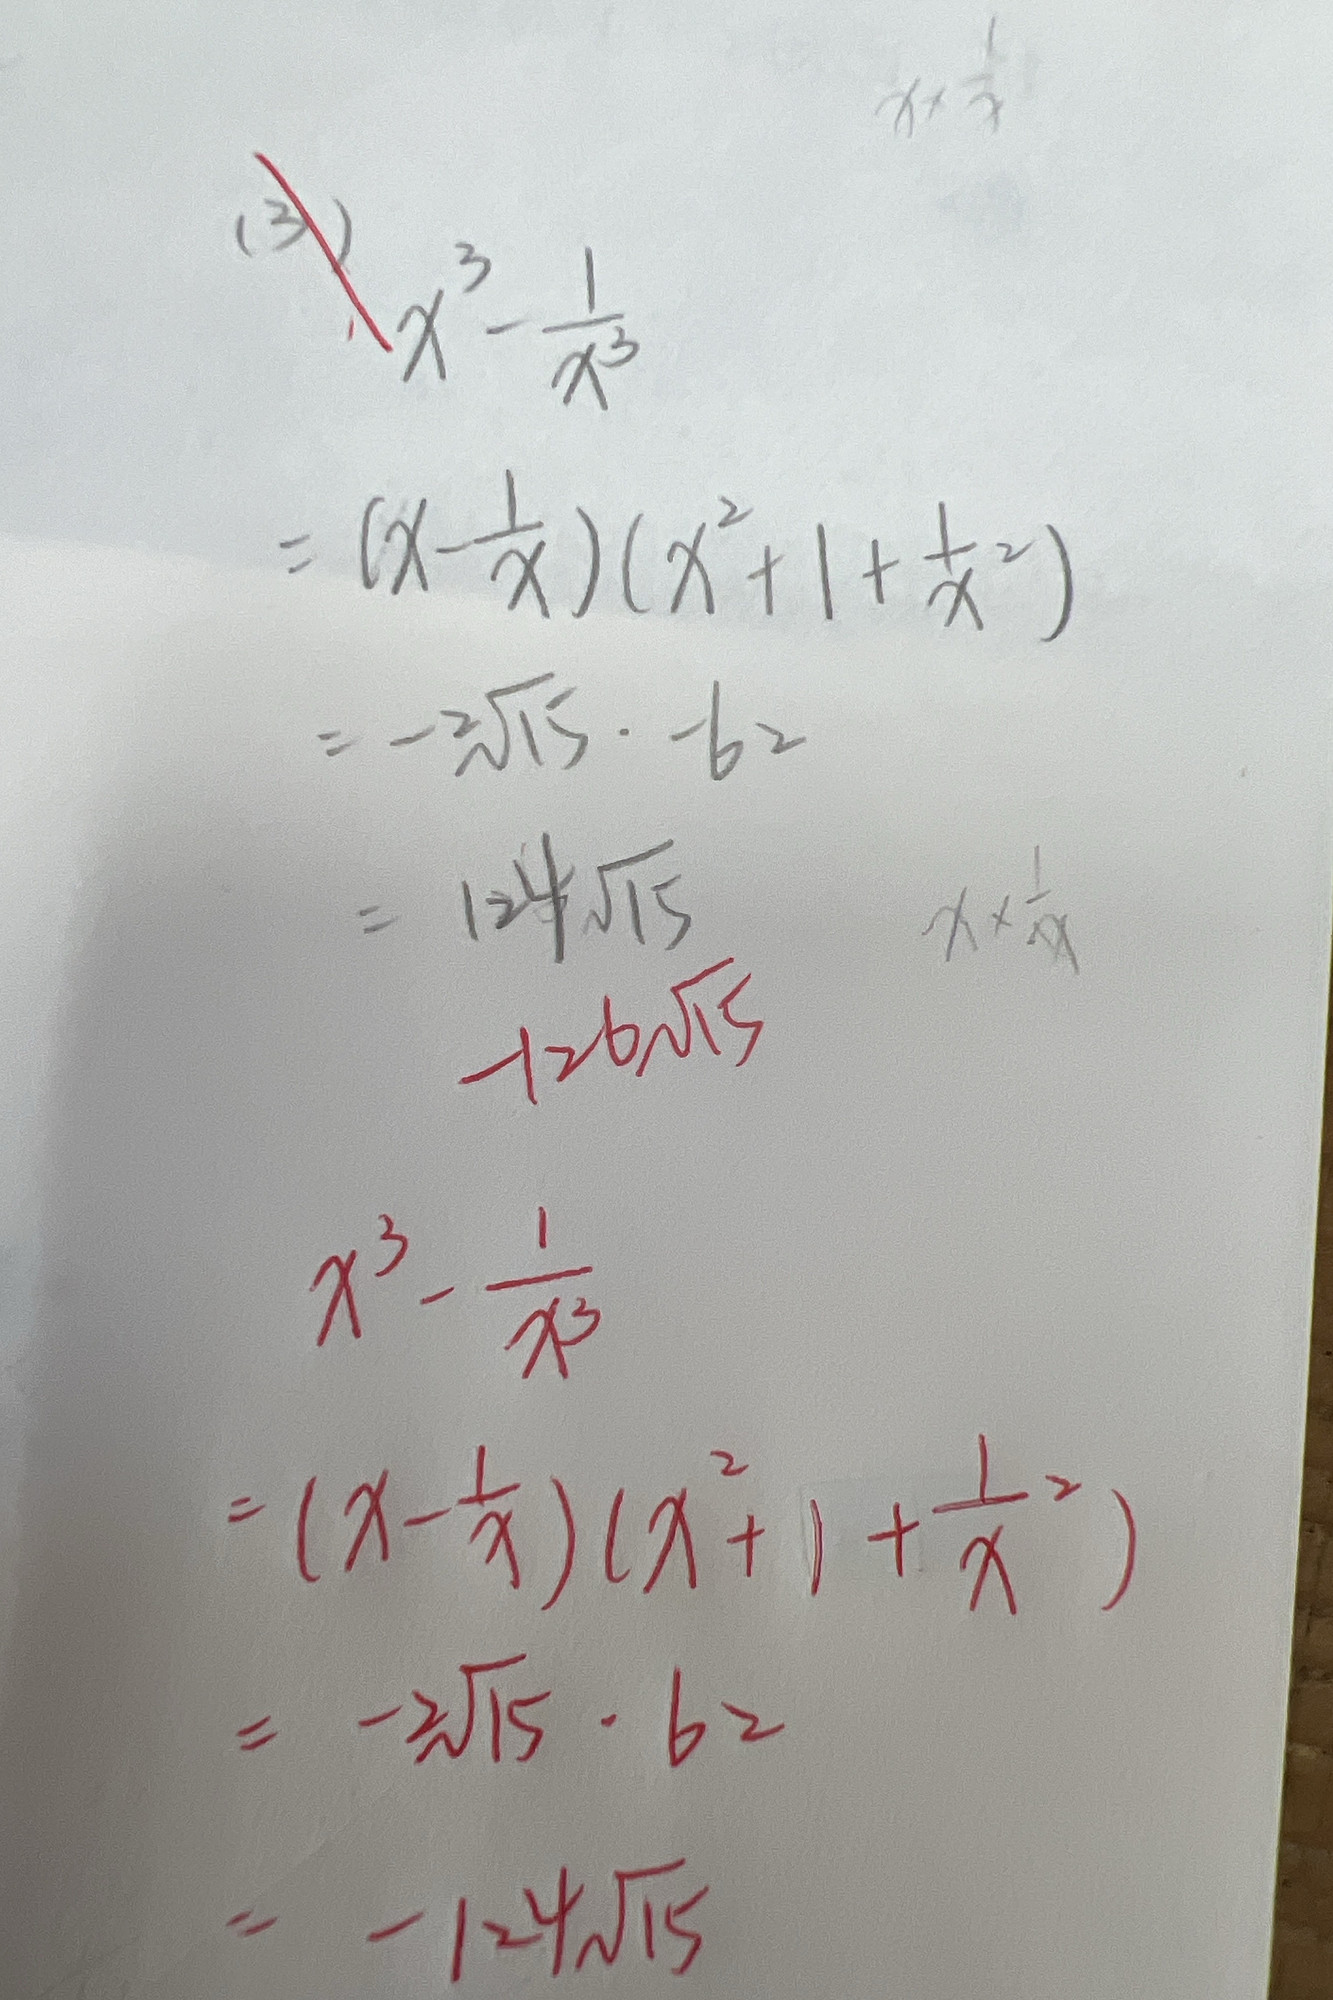 x × 1/x
(3)
x³ - 1/x³
= (x - 1/x)(x² + 1 + 1/x²)
= -2√15 · -62
= 124√15
x × 1/x
-126√15
x³ - 1/x³
= (x - 1/x)(x² + 1 + 1/x²)
= -2√15 · 62
= -124√15